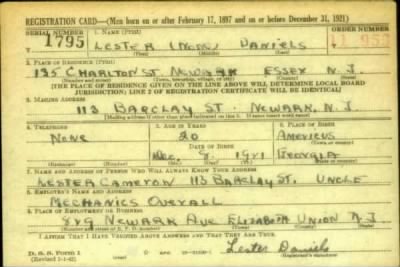 REGISTRATION CARD—(Men born on or after February 17, 1897 and on or before December 31, 1921)
SERIAL NUMBER 1. NAME (Print) ORDER NUMBER
1795 LESTER (NONE) DANIELS
2. PLACE OF RESIDENCE (Print)
135 CHARLTON ST NEWARK ESSEX N.J
(Number and street) (Town, township, village, or city) (County) (State)
[THE PLACE OF RESIDENCE GIVEN ON THE LINE ABOVE WILL DETERMINE LOCAL BOARD
JURISDICTION; LINE 2 OF REGISTRATION CERTIFICATE WILL BE IDENTICAL]
3. MAILING ADDRESS
113 BARCLAY ST. NEWARK, N.J
[Mailing address if other than place indicated on line 2. If same insert word same]
4. TELEPHONE 5. AGE IN YEARS 6. PLACE OF BIRTH
NONE 20 AMERICUS
DATE OF BIRTH (Town or county)
DEC. 9, 1921 GEORGIA
(Exchange) (Number) (Mo.) (Day) (Yr.) (State or country)
7. NAME AND ADDRESS OF PERSON WHO WILL ALWAYS KNOW YOUR ADDRESS
LESTER CAMERON 113 BARCLAY ST, UNCLE
8. EMPLOYER'S NAME AND ADDRESS
MECHANICS OVERALL
9. PLACE OF EMPLOYMENT OR BUSINESS
NEWARK AVE ELIZABETH UNION N.J
(Number and street or R. F. D. number) (Town) (County) (State)
I AFFIRM THAT I HAVE VERIFIED ABOVE ANSWERS AND THAT THEY ARE TRUE.
D. S. S. Form 1
(Revised 1-1-42) Lester Daniels
(Registrant's signature)